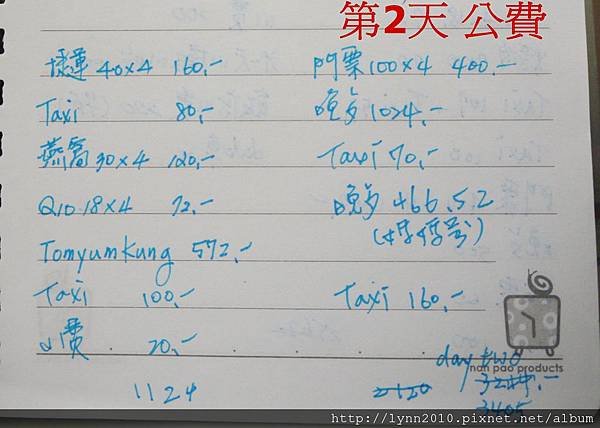 第2天 公費
捷運 40×4 160.-
Taxi 80.-
燕窩 30×4 120.-
Q10 18×4 72.-
Tomyumkung 572.-
Taxi 100.-
小費 20.-
1124
門票 100×4 400.-
晚多 10×4.-
Taxi 70.-
晚多 466.52
Taxi 160.-
day two
nan pao products
2120
3405
http://lynn2010.pixnet.net/album